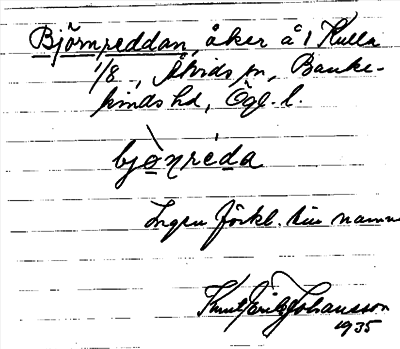 Björnreddan, åker å 1 Kulla
1/8, Åtvids sn, Banke-
kinds hd, Ögl. l.
bjònréda
Ingen förkl. till namnet
Knut Erik Johansson
1935